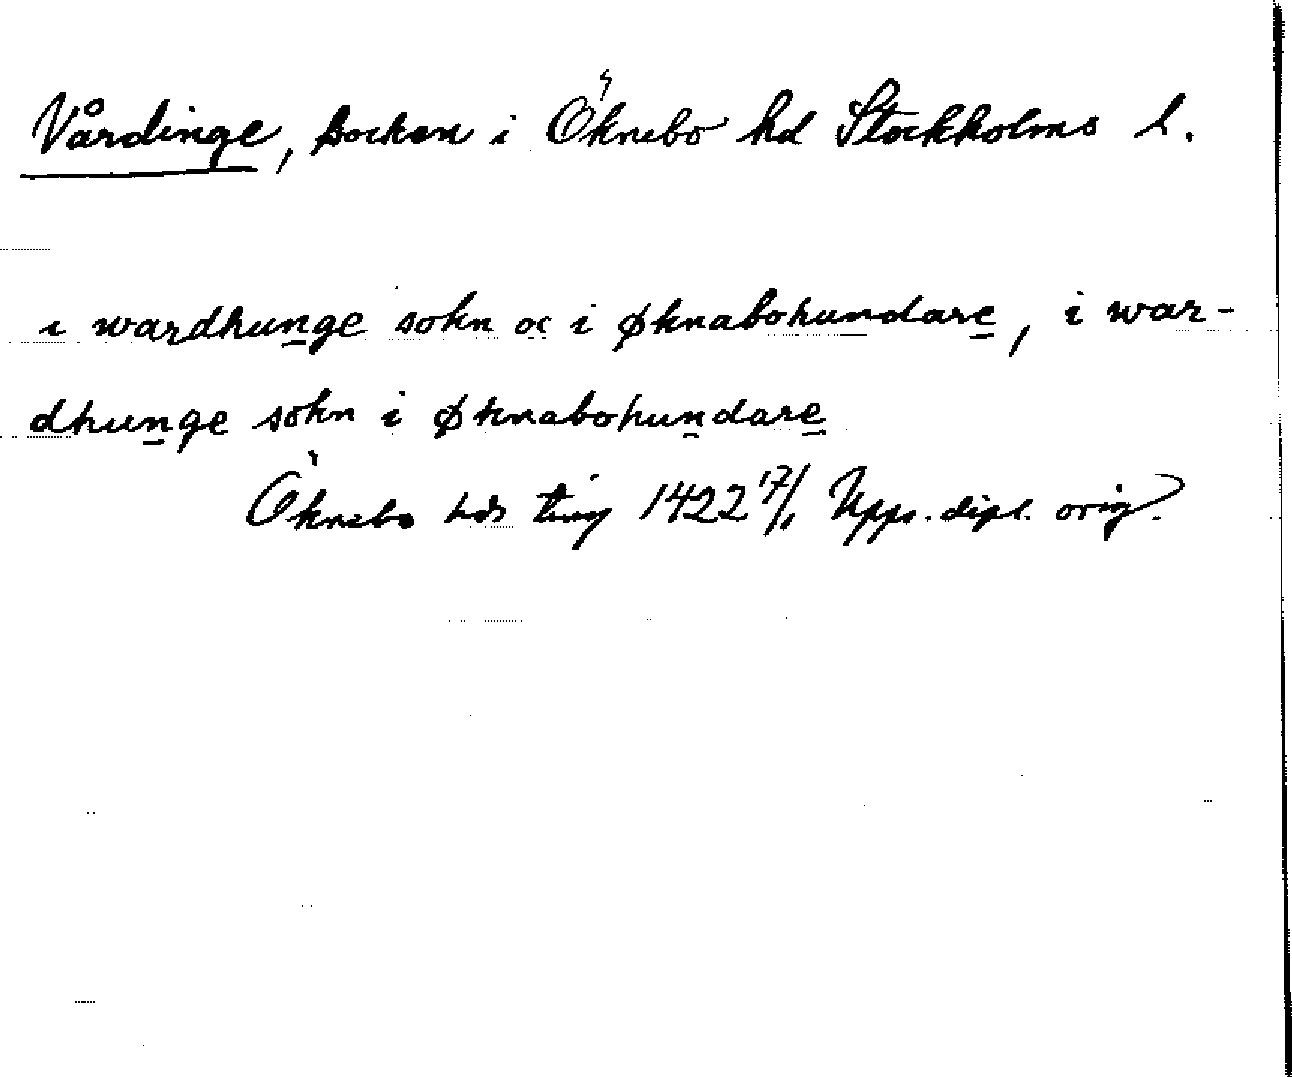 Vårdinge, socken i Öknebo hd Stockholms l.
i wardhunge sokn oc i øknabohundare, i war-
dhunge sokn i øknabohundare
Öknebo hds ting 1422 17/1 Upps. dipl. orig.